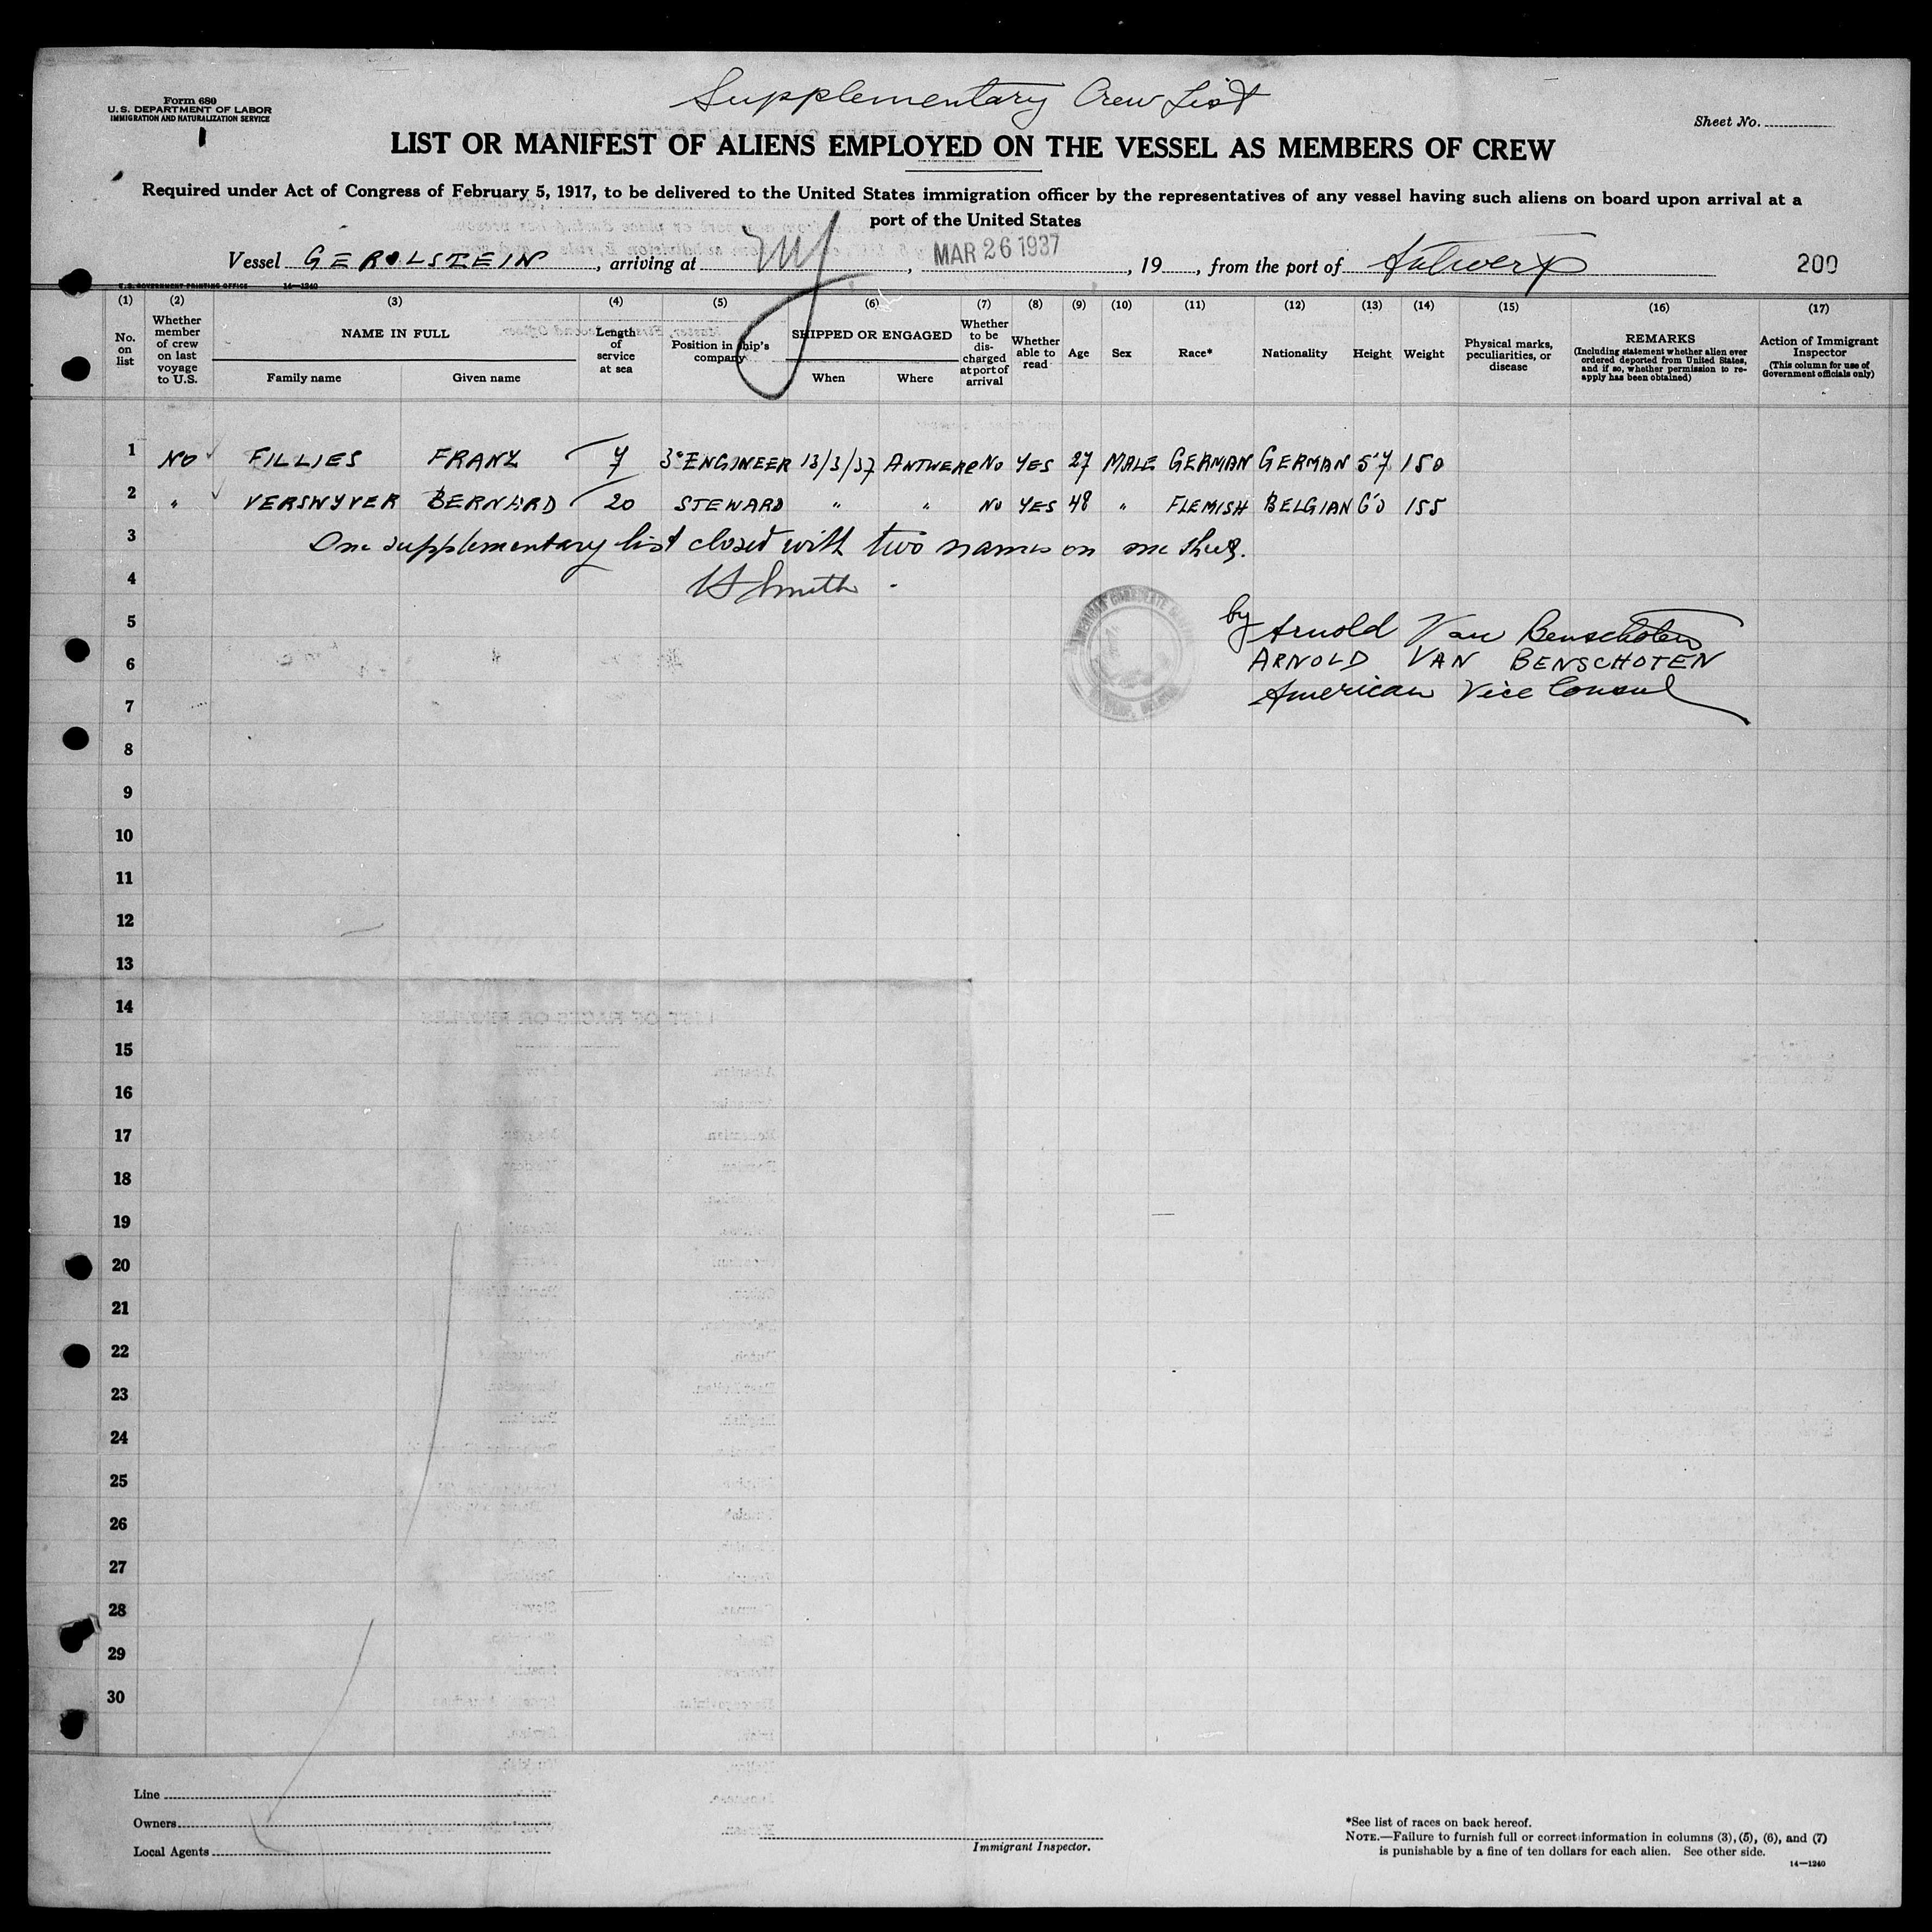 Supplementary Crew List
Form 680
U.S. DEPARTMENT OF LABOR
IMMIGRATION AND NATURALIZATION SERVICE
Sheet No.
LIST OR MANIFEST OF ALIENS EMPLOYED ON THE VESSEL AS MEMBERS OF CREW
Required under Act of Congress of February 5, 1917, to be delivered to the United States immigration officer by the representatives of any vessel having such aliens on board upon arrival at a
port of the United States
Vessel GEROLSTEIN, arriving at NY, MAR 26 1937, 19, from the port of Antwerp 200
U.S. GOVERNMENT PRINTING OFFICE 14—1240
(1) (2) (3) (4) (5) (6) (7) (8) (9) (10) (11) (12) (13) (14) (15) (16) (17)
No. on list
Whether member of crew on last voyage to U.S.
NAME IN FULL
Family name Given name
Length of service at sea
Position in ship's company
SHIPPED OR ENGAGED
When Where
Whether to be discharged at port of arrival
Whether able to read
Age
Sex
Race*
Nationality
Height
Weight
Physical marks, peculiarities, or disease
REMARKS
(Including statement whether alien ever ordered deported from United States, and if so, whether permission to reapply has been obtained)
Action of Immigrant Inspector
(This column for use of Government officials only)
1 NO FILLIES FRANZ 7 3° ENGINEER 13/3/37 ANTWERP NO YES 27 MALE GERMAN GERMAN 5'7 150
2 " VERSWYVER BERNARD 20 STEWARD " " NO YES 48 " FLEMISH BELGIAN 6'0 155
3 One supplementary list closed with two names on one sheet.
4 Smith
5 by Arnold Van Benschoten
6 ARNOLD VAN BENSCHOTEN
7 American Vice Consul
8
9
10
11
12
13
14
15
16
17
18
19
20
21
22
23
24
25
26
27
28
29
30
Line
Owners
Local Agents
Immigrant Inspector.
*See list of races on back hereof.
NOTE.—Failure to furnish full or correct information in columns (3), (5), (6), and (7)
is punishable by a fine of ten dollars for each alien. See other side.
14—1240